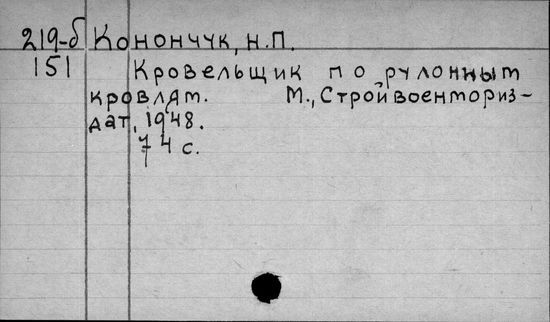 219-б Конончук, Н.П.
151 Кровельщик по рулонным
кровлям. М., Стройвоенмориз-
дат, 1948.
74 с.